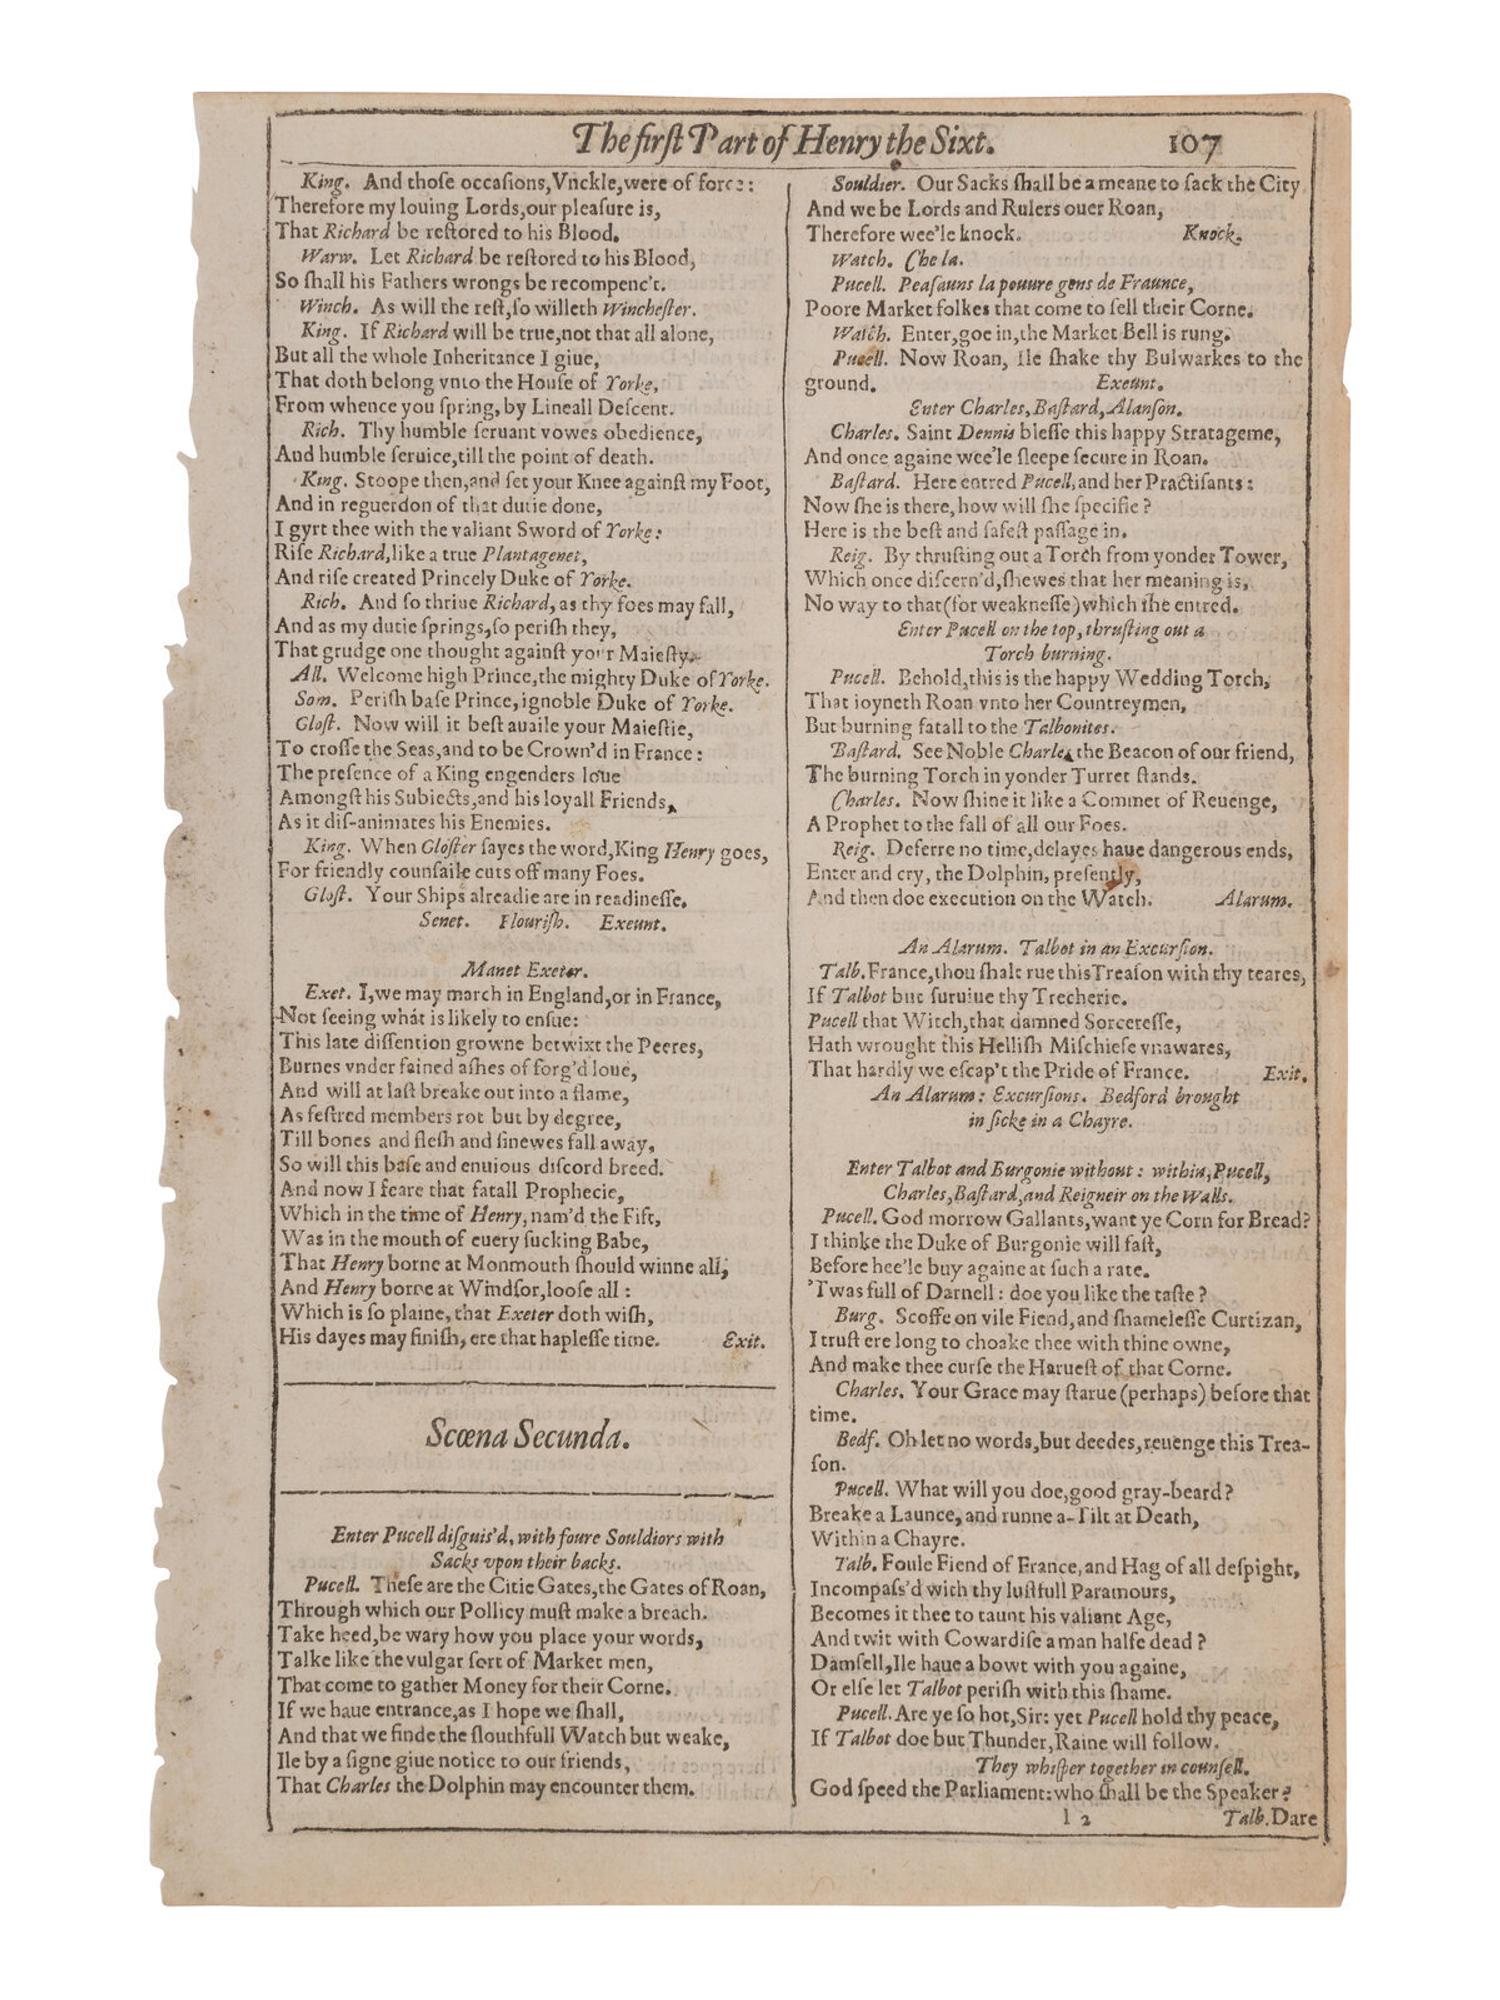 The firſt Part of Henry the Sixt. 107
King. And thoſe occaſions,Vnckle,were of force:
Therefore my louing Lords,our pleaſure is,
That Richard be reſtored to his Blood.
Warw. Let Richard be reſtored to his Blood,
So ſhall his Fathers wrongs be recompenc't.
Winch. As will the reſt,ſo willeth Wincheſter.
King. If Richard will be true,not that all alone,
But all the whole Inheritance I giue,
That doth belong vnto the Houſe of Yorke,
From whence you ſpring, by Lineall Deſcent.
Rich. Thy humble ſeruant vowes obedience,
And humble ſeruice,till the point of death.
King. Stoope then,and ſet your Knee againſt my Foot,
And in reguerdon of that dutie done,
I gyrt thee with the valiant Sword of Yorke:
Riſe Richard,like a true Plantagenet,
And riſe created Princely Duke of Yorke.
Rich. And ſo thriue Richard, as thy foes may fall,
And as my dutie ſprings,ſo periſh they,
That grudge one thought againſt your Maieſty.
All. Welcome high Prince,the mighty Duke of Yorke.
Som. Periſh baſe Prince,ignoble Duke of Yorke.
Gloſt. Now will it beſt auaile your Maieſtie,
To croſſe the Seas,and to be Crown'd in France:
The preſence of a King engenders loue
Amongſt his Subiects,and his loyall Friends,
As it diſ-animates his Enemies.
King. When Gloſter ſayes the word,King Henry goes,
For friendly counſaile cuts off many Foes.
Gloſt. Your Ships alreadie are in readineſſe.
Senet. Flouriſh. Exeunt.
Manet Exeter.
Exet. I,we may march in England,or in France,
Not ſeeing what is likely to enſue:
This late diſſention growne betwixt the Peeres,
Burnes vnder fained aſhes of forg'd loue,
And will at laſt breake out into a flame,
As feſtred members rot but by degree,
Till bones and fleſh and ſinewes fall away,
So will this baſe and enuious diſcord breed.
And now I feare that fatall Prophecie,
Which in the time of Henry, nam'd the Fift,
Was in the mouth of euery ſucking Babe,
That Henry borne at Monmouth ſhould winne all,
And Henry borne at Windſor,looſe all :
Which is ſo plaine, that Exeter doth wiſh,
His dayes may finiſh, ere that hapleſſe time. Exit.
Scœna Secunda.
Enter Pucell diſguis'd, with foure Souldiors with
Sacks vpon their backs.
Pucell. Theſe are the Citie Gates,the Gates of Roan,
Through which our Pollicy muſt make a breach.
Take heed,be wary how you place your words,
Talke like the vulgar ſort of Market men,
That come to gather Money for their Corne.
If we haue entrance,as I hope we ſhall,
And that we finde the ſlouthfull Watch but weake,
Ile by a ſigne giue notice to our friends,
That Charles the Dolphin may encounter them.
Souldier. Our Sacks ſhall be a meane to ſack the City
And we be Lords and Rulers ouer Roan,
Therefore wee'le knock. Knock.
Watch. Che la.
Pucell. Peaſauns la pouure gens de Fraunce,
Poore Market folkes that come to ſell their Corne.
Watch. Enter,goe in,the Market Bell is rung.
Pucell. Now Roan, Ile ſhake thy Bulwarkes to the
ground. Exeunt.
Enter Charles, Baſtard, Alanſon.
Charles. Saint Dennis bleſſe this happy Stratageme,
And once againe wee'le ſleepe ſecure in Roan.
Baſtard. Here entred Pucell,and her Practiſants:
Now ſhe is there, how will ſhe ſpecifie ?
Here is the beſt and ſafeſt paſſage in.
Reig. By thruſting out a Torch from yonder Tower,
Which once diſcern'd,ſhewes that her meaning is,
No way to that(for weakneſſe)which ſhe entred.
Enter Pucell on the top, thruſting out a
Torch burning.
Pucell. Behold,this is the happy Wedding Torch,
That ioyneth Roan vnto her Countreymen,
But burning fatall to the Talbonites.
Baſtard. See Noble Charles the Beacon of our friend,
The burning Torch in yonder Turret ſtands.
Charles. Now ſhine it like a Commet of Reuenge,
A Prophet to the fall of all our Foes.
Reig. Deferre no time,delayes haue dangerous ends,
Enter and cry, the Dolphin, preſently,
And then doe execution on the Watch. Alarum.
An Alarum. Talbot in an Excurſion.
Talb.France,thou ſhalt rue this Treaſon with thy teares,
If Talbot but ſuruiue thy Trecherie.
Pucell that Witch,that damned Sorcereſſe,
Hath wrought this Helliſh Miſchiefe vnawares,
That hardly we eſcap't the Pride of France. Exit.
An Alarum: Excurſions. Bedford brought
in ſicke in a Chayre.
Enter Talbot and Burgonie without : within, Pucell,
Charles, Baſtard,and Reigneir on the Walls.
Pucell. God morrow Gallants,want ye Corn for Bread?
I thinke the Duke of Burgonie will faſt,
Before hee'le buy againe at ſuch a rate.
'Twas full of Darnell : doe you like the taſte ?
Burg. Scoffe on vile Fiend,and ſhameleſſe Curtizan,
I truſt ere long to choake thee with thine owne,
And make thee curſe the Harueſt of that Corne.
Charles. Your Grace may ſtarue (perhaps) before that
time.
Bedf. Oh let no words,but deedes,reuenge this Trea-
ſon.
Pucell. What will you doe,good gray-beard ?
Breake a Launce, and runne a-Tilt at Death,
Within a Chayre.
Talb. Foule Fiend of France,and Hag of all deſpight,
Incompaſs'd with thy luſtfull Paramours,
Becomes it thee to taunt his valiant Age,
And twit with Cowardiſe a man halfe dead ?
Damſell,Ile haue a bowt with you againe,
Or elſe let Talbot periſh with this ſhame.
Pucell. Are ye ſo hot,Sir: yet Pucell hold thy peace,
If Talbot doe but Thunder,Raine will follow.
They whiſper together in counſell.
God ſpeed the Parliament:who ſhall be the Speaker?
l 2 Talb.Dare